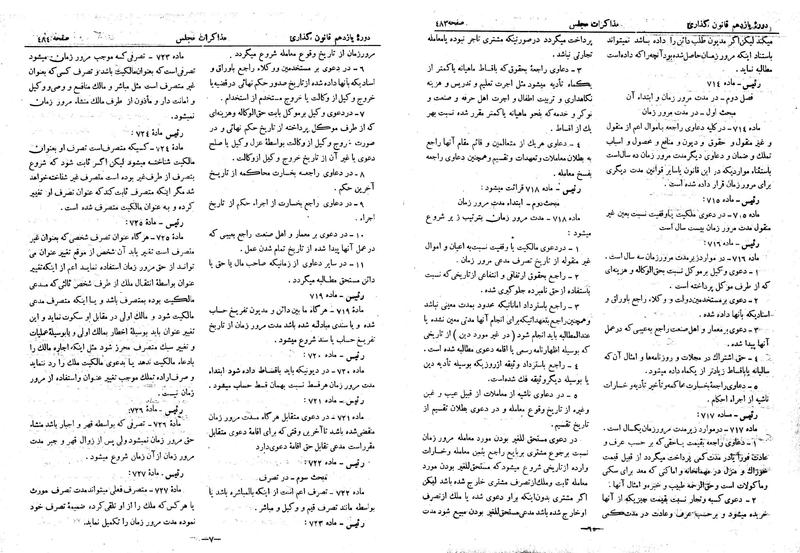 دورهٔ یازدهم قانون گذاری
مذاکرات مجلس
صفحه ۴۸۳
میکند لیکن اگر مدیون طلب دائن را داده باشد نمیتواند
باستناد اینکه مرور زمان حاصل شده بود آنچه را که داده است
مطالبه نماید.
رئیس - ماده ۷۱۴
فصل دوم - در مدت مرور زمان و ابتداء آن
مبحث اول - در مدت مرور زمان
ماده ۷۱۴ - در کلیه دعاوی راجعه باموال اعم از منقول
و غیر منقول و حقوق و دیون و منافع و محصول و اسباب
تملك و ضمان و دعاوی دیگر مدت مرور زمان ده سال است
باستثناء مواردیکه در این قانون یا سایر قوانین مدت دیگری
برای مرور زمان قرار داده شده است.
رئیس - ماده ۷۱۵:
ماده ۷۱۵ - در دعوی مالکیت یا وقفیت نسبت بعین غیر
منقول مدت مرور زمان بیست سال است
رئیس - ماده ۷۱۶:
ماده ۷۱۶ - در موارد زیر مدت مرور زمان سه سال است.
۱ - دعاوی وکیل بر موکل نسبت بحق الوکاله و هزینه‌ای
که از طرف موکل پرداخته است
۲ - دعوی بر مستخدمین دولت و وکلاء راجع باوراق و
اسنادیکه بآنها داده شده.
۳ - دعوی بر معمار و اهل صنعت راجع بعیبی که در عمل
آنها پیدا شده.
۴ - حق اشتراك در مجلات و روزنامه‌ها و امثال آن که
سالیانه یا باقساط زیادتر از یکماه داده میشود.
۵ - دعاوی راجعه بخسارت محاکمه و تأخیر تأدیه و خسارات
ناشیه از اجراء احکام.
رئیس - ماده ۷۱۷:
ماده ۷۱۷ - در موارد زیر مدت مرور زمان یکسال است.
۱ - دعاوی راجعه بقیمت یا حقی که بر حسب عرف و
عادت فوراً یا در مدت کمی پرداخت میگردد از قبیل قیمت
خوراك و منزل در مهمانخانه و اماکنی که معد برای سکنی
و مأکولات است و حق الزحمه طبیب و غیره و امثال آنها.
۲ - دعوی کسبه و تجار نسبت بقیمت چیزیکه از آنها
خریده میشود و بر حسب عرف و عادت در مدت کمی
پرداخت میگردد در صورتیکه مشتری تاجر نبوده یا معامله
تجارتی نباشد.
۳ - دعاوی راجعه بحقوق که باقساط ماهیانه یا کمتر از
یکماه تأدیه میشود مثل اجرت تعلیم و تدریس و هزینه
نگاهداری و تربیت اطفال و اجرت اهل حرفه و صنعت و
نوکر و خدمه که بنحو ماهیانه یا کمتر مقرر شده نسبت بهر
یك از اقساط.
۴ - دعاوی هر یك از متعاملین و قائم مقام آنها راجع
به بطلان معاملات و تعهدات و تقسیم و همچنین دعاوی راجعه
بفسخ معامله.
رئیس - ماده ۷۱۸ قرائت میشود:
مبحث دوم - ابتداء مدت مرور زمان
ماده ۷۱۸ - مدت مرور زمان بترتیب زیر شروع
میشود:
۱ - در دعوی مالکیت یا وقفیت نسبت به اعیان و اموال
غیر منقوله از تاریخ تصرف مدعی علیه بعنوان مالکیت
۲ - راجع بحقوق ارتفاقی و انتفاعی از تاریخی که نسبت
باستفاده از حق نامبرده جلوگیری شده.
۳ - راجع باسترداد اماناتیکه محدود بمدت معینی نباشد
و همچنین راجع بتعهداتیکه برای انجام آنها مدتی معین نشده یا
عندالمطالبه باید انجام شود (در غیر مورد دین) از تاریخی
که بوسیله اظهارنامه رسمی یا اقامه دعوی مطالبه شده است.
۴ - راجع باسترداد وثیقه از روزیکه بوسیله تأدیه دین
یا بوسیله دیگر وثیقه فك شده است.
۵ - در دعاوی ناشیه از معاملات از قبیل عیب و غبن
وغیره از تاریخ وقوع معامله و در دعوی بطلان تقسیم از
تاریخ تقسیم.
در دعوی مستحق للغیر بودن مورد معامله مرور زمان
نسبت برجوع مشتری ببایع راجع بثمن معامله و خسارات
وارده از تاریخی شروع میشود که مستحق للغیر بودن مورد
معامله ثابت و ملك از تصرف مشتری خارج شده باشد لیکن
اگر مشتری بدون اینکه بر او دعوی شده یا ملك از تصرف
او خارج شده باشد مدعی مستحق للغیر بودن مبیع شود مدت
-۶-
دورهٔ یازدهم قانون گذاری
مذاکرات مجلس
صفحه ۴۸۴
مرور زمان از تاریخ وقوع معامله شروع میگردد
۶ - در دعوی بر مستخدمین و وکلاء راجع باوراق و
اسنادیکه بآنها داده شده از تاریخ صدور حکم نهائی در قضیه یا
خروج وکیل از وکالت یا خروج مستخدم از استخدام.
۷ - در دعوی وکیل بر موکل بابت حق الوکاله و هزینه‌ای
که از طرف موکل پرداخته از تاریخ حکم نهائی و در
صورت خروج وکیل از وکالت بواسطهٔ عزل وکیل یا صلح
دعوی یا غیر آن از تاریخ خروج وکیل از وکالت.
۸ - در دعاوی راجعه بخسارت محاکمه از تاریخ
آخرین حکم.
۹ - در دعوی راجع بخسارت از اجراء حکم از تاریخ
اجراء.
۱۰ - در دعوی بر معمار و اهل صنعت راجع بعیبی که
در عمل آنها پیدا شده از تاریخ تمام شدن عمل.
۱۱ - در سایر دعاوی از زمانیکه صاحب مال یا حق یا
دائن مستحق مطالبه میگردد.
رئیس - ماده ۷۱۹
مادهٔ ۷۱۹ - هر گاه ما بین دائن و مدیون تفریغ حساب
شده و یا سندی مبادله شده باشد مدت مرور زمان از تاریخ
تفریغ حساب یا سند شروع میشود.
رئیس - ماده ۷۲۰:
ماده ۷۲۰ - در دیونیکه باید باقساط داده شود ابتداء
مدت مرور زمان هر قسط نسبت بهمان قسط حساب میشود.
رئیس - ماده ۷۲۱:
ماده ۷۲۱ - در دعاوی متقابل هر گاه مدت مرور زمان
منقضی شده باشد تا آخرین وقتی که برای اقامهٔ دعوای متقابل
مقرر است مدعی تقابل حق اقامهٔ دعوی دارد
رئیس - ماده ۷۲۲:
مبحث سوم - در تصرف.
ماده ۷۲۲ - تصرف اعم است از اینکه بالمباشره باشد یا
بواسطه مانند تصرف قیم و وکیل و مباشر.
رئیس - ماده ۷۲۳
ماده ۷۲۳ - تصرفی که موجب مرور زمان میشود
تصرفی است که بعنوان مالکیت باشد و تصرف کسی که بعنوان
غیر متصرف است مثل مباشر و مالك منافع و وصی و وکیل
و امانت دار و مأذون از طرف مالك منشاء مرور زمان
نمیشود.
رئیس - ماده ۷۲۴:
ماده ۷۲۴ - کسیکه متصرف است تصرف او بعنوان
مالکیت شناخته میشود لیکن اگر ثابت شود که شروع
بتصرف از طرف غیر بوده است متصرف غیر شناخته خواهد
شد مگر اینکه متصرف ثابت کند که عنوان تصرف او تغییر
کرده و به عنوان مالکیت متصرف شده است.
رئیس - مادهٔ ۷۲۵:
مادهٔ ۷۲۵ - هر گاه عنوان تصرف شخصی که بعنوان غیر
متصرف است تغییر یابد آن شخص از موقع تغییر عنوان می
تواند از حق مرور زمان استفاده نماید اعم از اینکه تغییر
عنوان بواسطهٔ انتقال ملك از طرف شخص ثالثی که مدعی
مالکیت بوده بمتصرف باشد و یا اینکه متصرف مدعی
مالکیت شود و مالك اولی در مقابل او سکوت نماید و این
تغییر عنوان باید بوسیله اخطار بمالك اولی و یا بوسیله عملیات
و تغییر سبك متصرف محرز شود مثل اینکه اجاره مالك را
بادعاء مالکیت ندهد یا بدعوی مالکیت ملك را رد ننماید
و صرف اراده تملك موجب تغییر عنوان و استفاده از مرور
زمان نیست.
رئیس - ماده ۷۲۶:
ماده ۷۲۶ - تصرفی که بواسطه قهر و اجبار باشد منشاء
حق مرور زمان نمیشود ولی پس از زوال قهر و جبر مدت
مرور زمان از آن زمان شروع میشود.
رئیس - ماده ۷۲۷:
ماده ۷۲۷ - متصرف فعلی میتواند مدت تصرف مورث
یا هر کس که ملك را از او تلقی کرده ضمیمهٔ تصرف خود
نموده مدت مرور زمان را تکمیل نماید.
-۷-